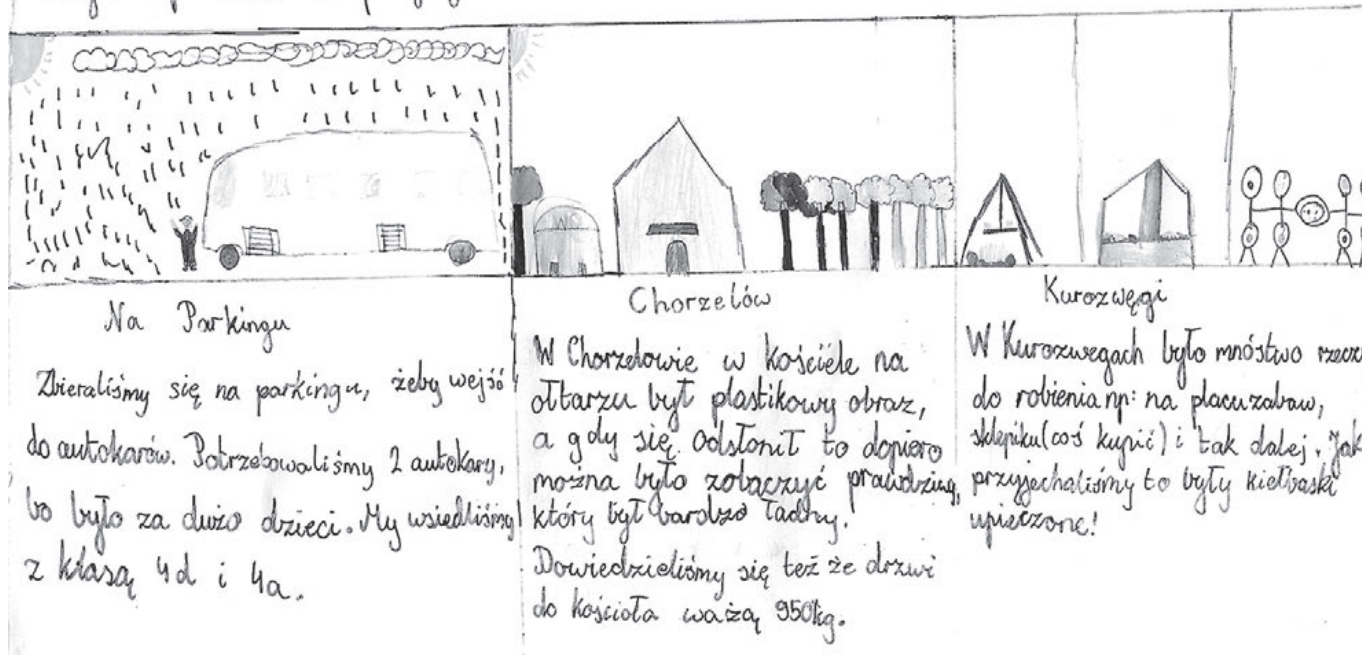 WC
Na Parkingu
Zbieraliśmy się na parkingu, żeby wejść
do autokarów. Potrzebowaliśmy 2 autokary,
bo było za dużo dzieci. My wsiedliśmy
z klasą 4d i 4a.
Chorzelów
W Chorzelowie w kościele na
ołtarzu był plastikowy obraz,
a gdy się odsłonił to dopiero
można było zobaczyć prawdziwy,
który był bardzo ładny.
Dowiedzieliśmy się też że drzwi
do kościoła ważą 950kg.
Kurozwęgi
W Kurozwegach było mnóstwo rzeczy
do robienia np: na placu zabaw,
sklepiku (coś kupić) i tak dalej. Jak
przyjechaliśmy to były kiełbaski
upieczone!